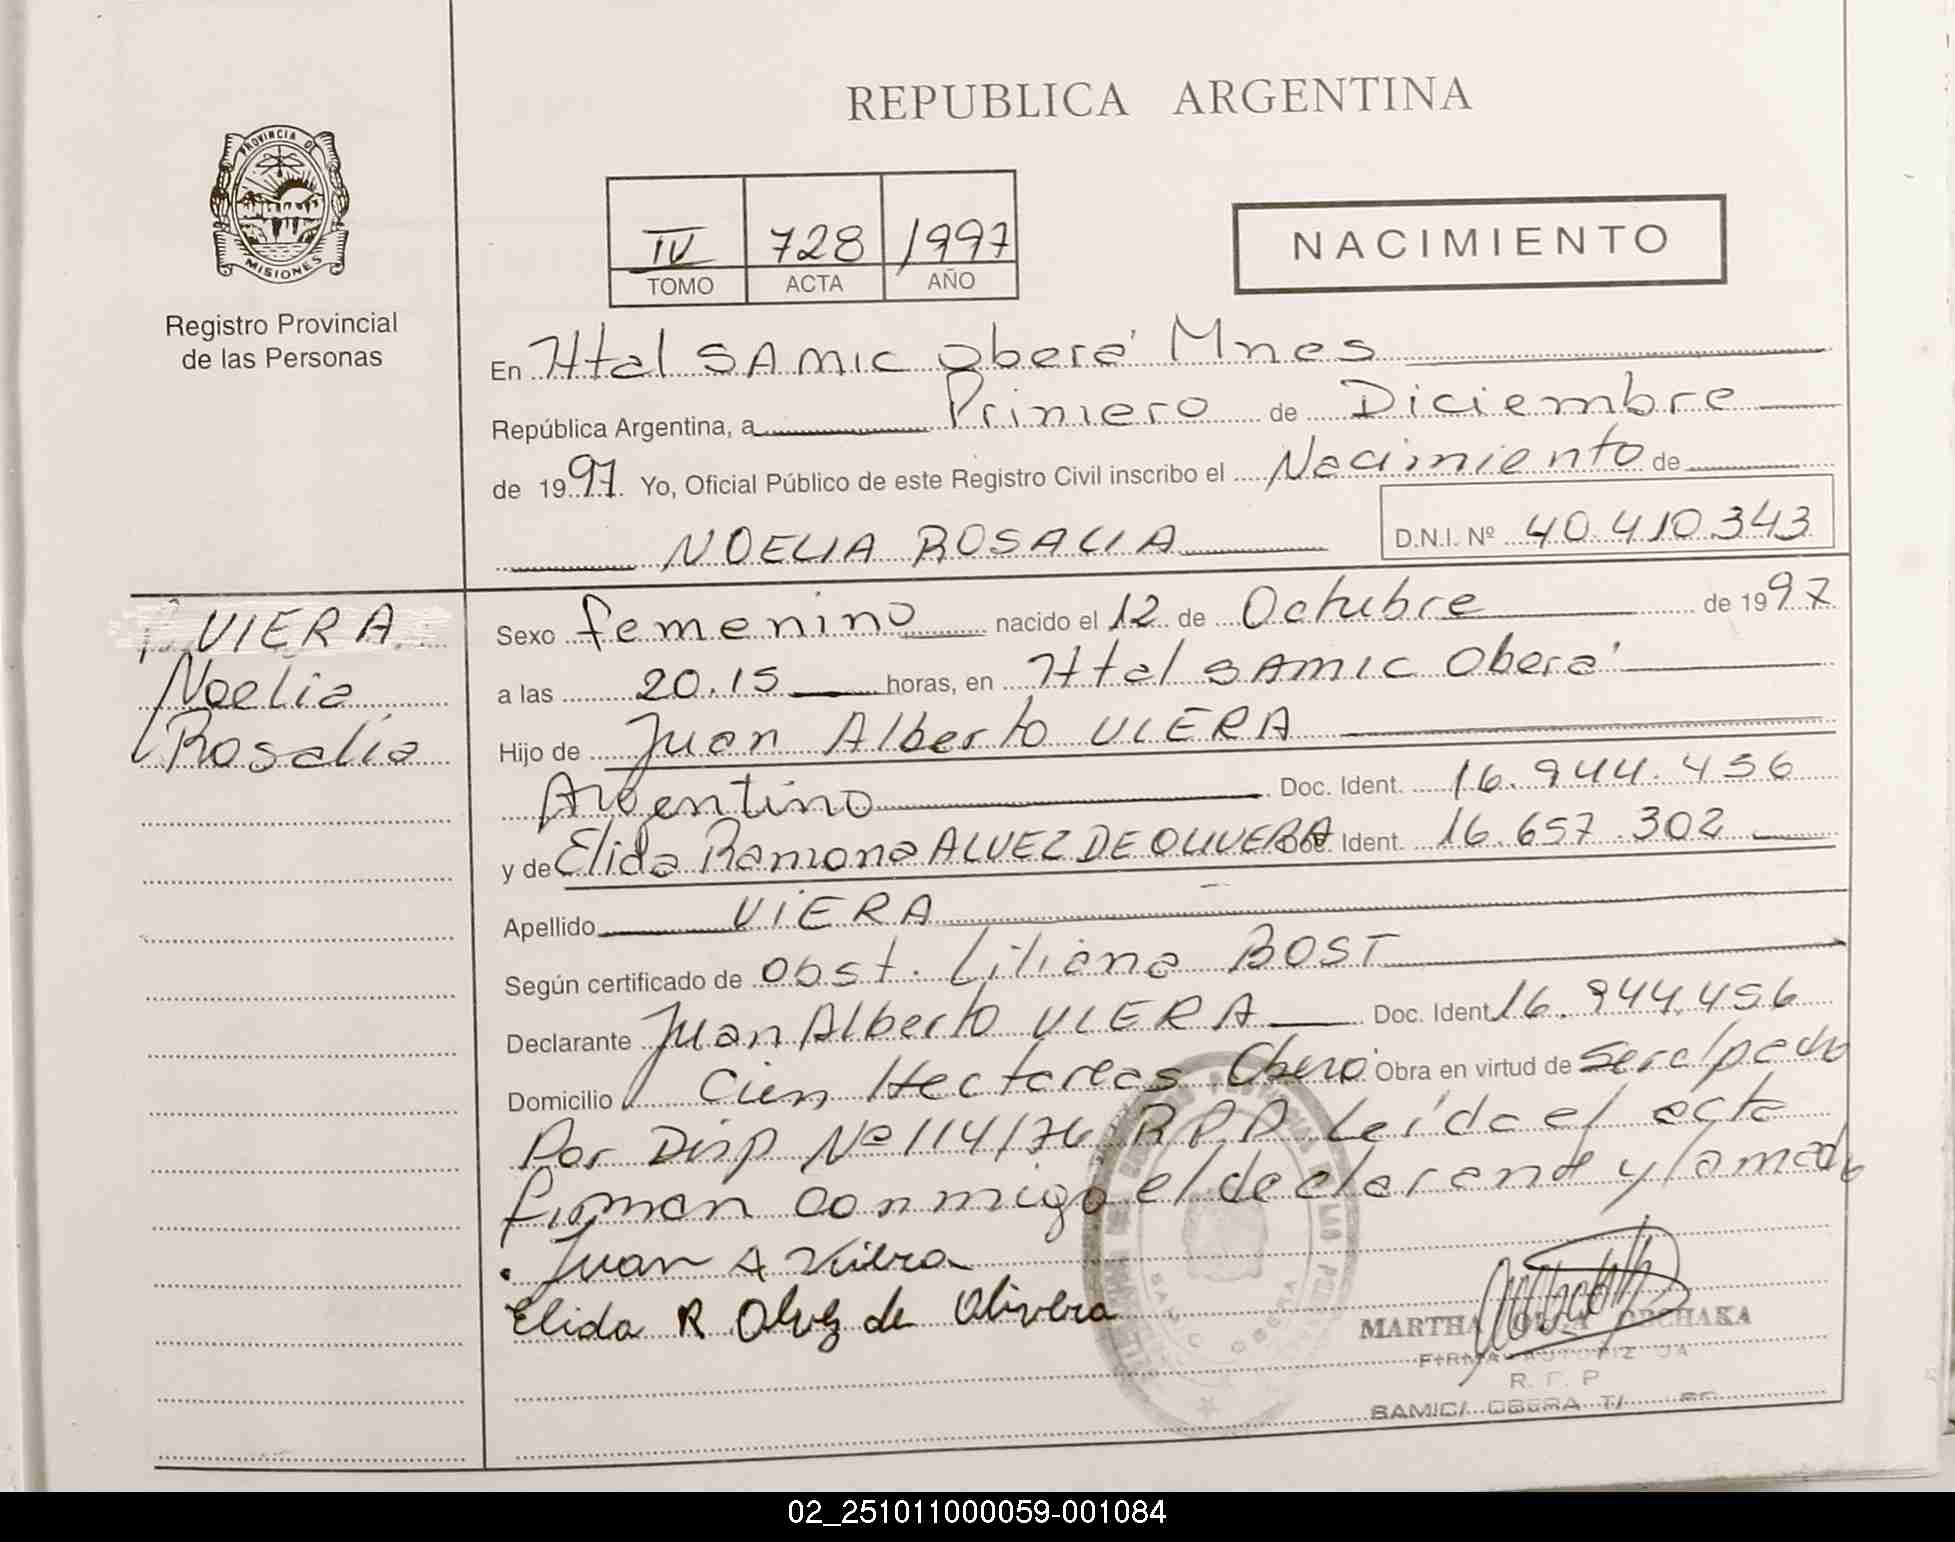 REPUBLICA ARGENTINA
PROVINCIA DE
MISIONES
Registro Provincial
de las Personas
IV 728 1997
TOMO ACTA AÑO
NACIMIENTO
En Htal SAMIC Oberá Mnes
República Argentina, a Primero de Diciembre
de 1997. Yo, Oficial Público de este Registro Civil inscribo el Nacimiento de
NOELIA ROSALIA D.N.I. Nº 40.410.343
VIERA
Noelia
Rosalia
Sexo femenino nacido el 12 de Octubre de 1997
a las 20.15 horas, en Htal SAMIC Oberá
Hijo de Juan Alberto VIERA
Argentino Doc. Ident. 16.944.456
y de Elida Ramona ALVEZ DE OLIVERA Doc. Ident. 16.657.302
Apellido VIERA
Según certificado de Obst. Liliana BOST
Declarante Juan Alberto VIERA Doc. Ident 16.944.456
Domicilio Cien Hectareas Oberá Obra en virtud de ser el padre
Por Disp Nº 114/76 R.P.P. Leída el acta
firman conmigo el declarante y la madre
Juan A Viera
Elida R Alvez de Olivera
MARTHA
R. P. P
SAMIC/ OBERA
02_251011000059-001084